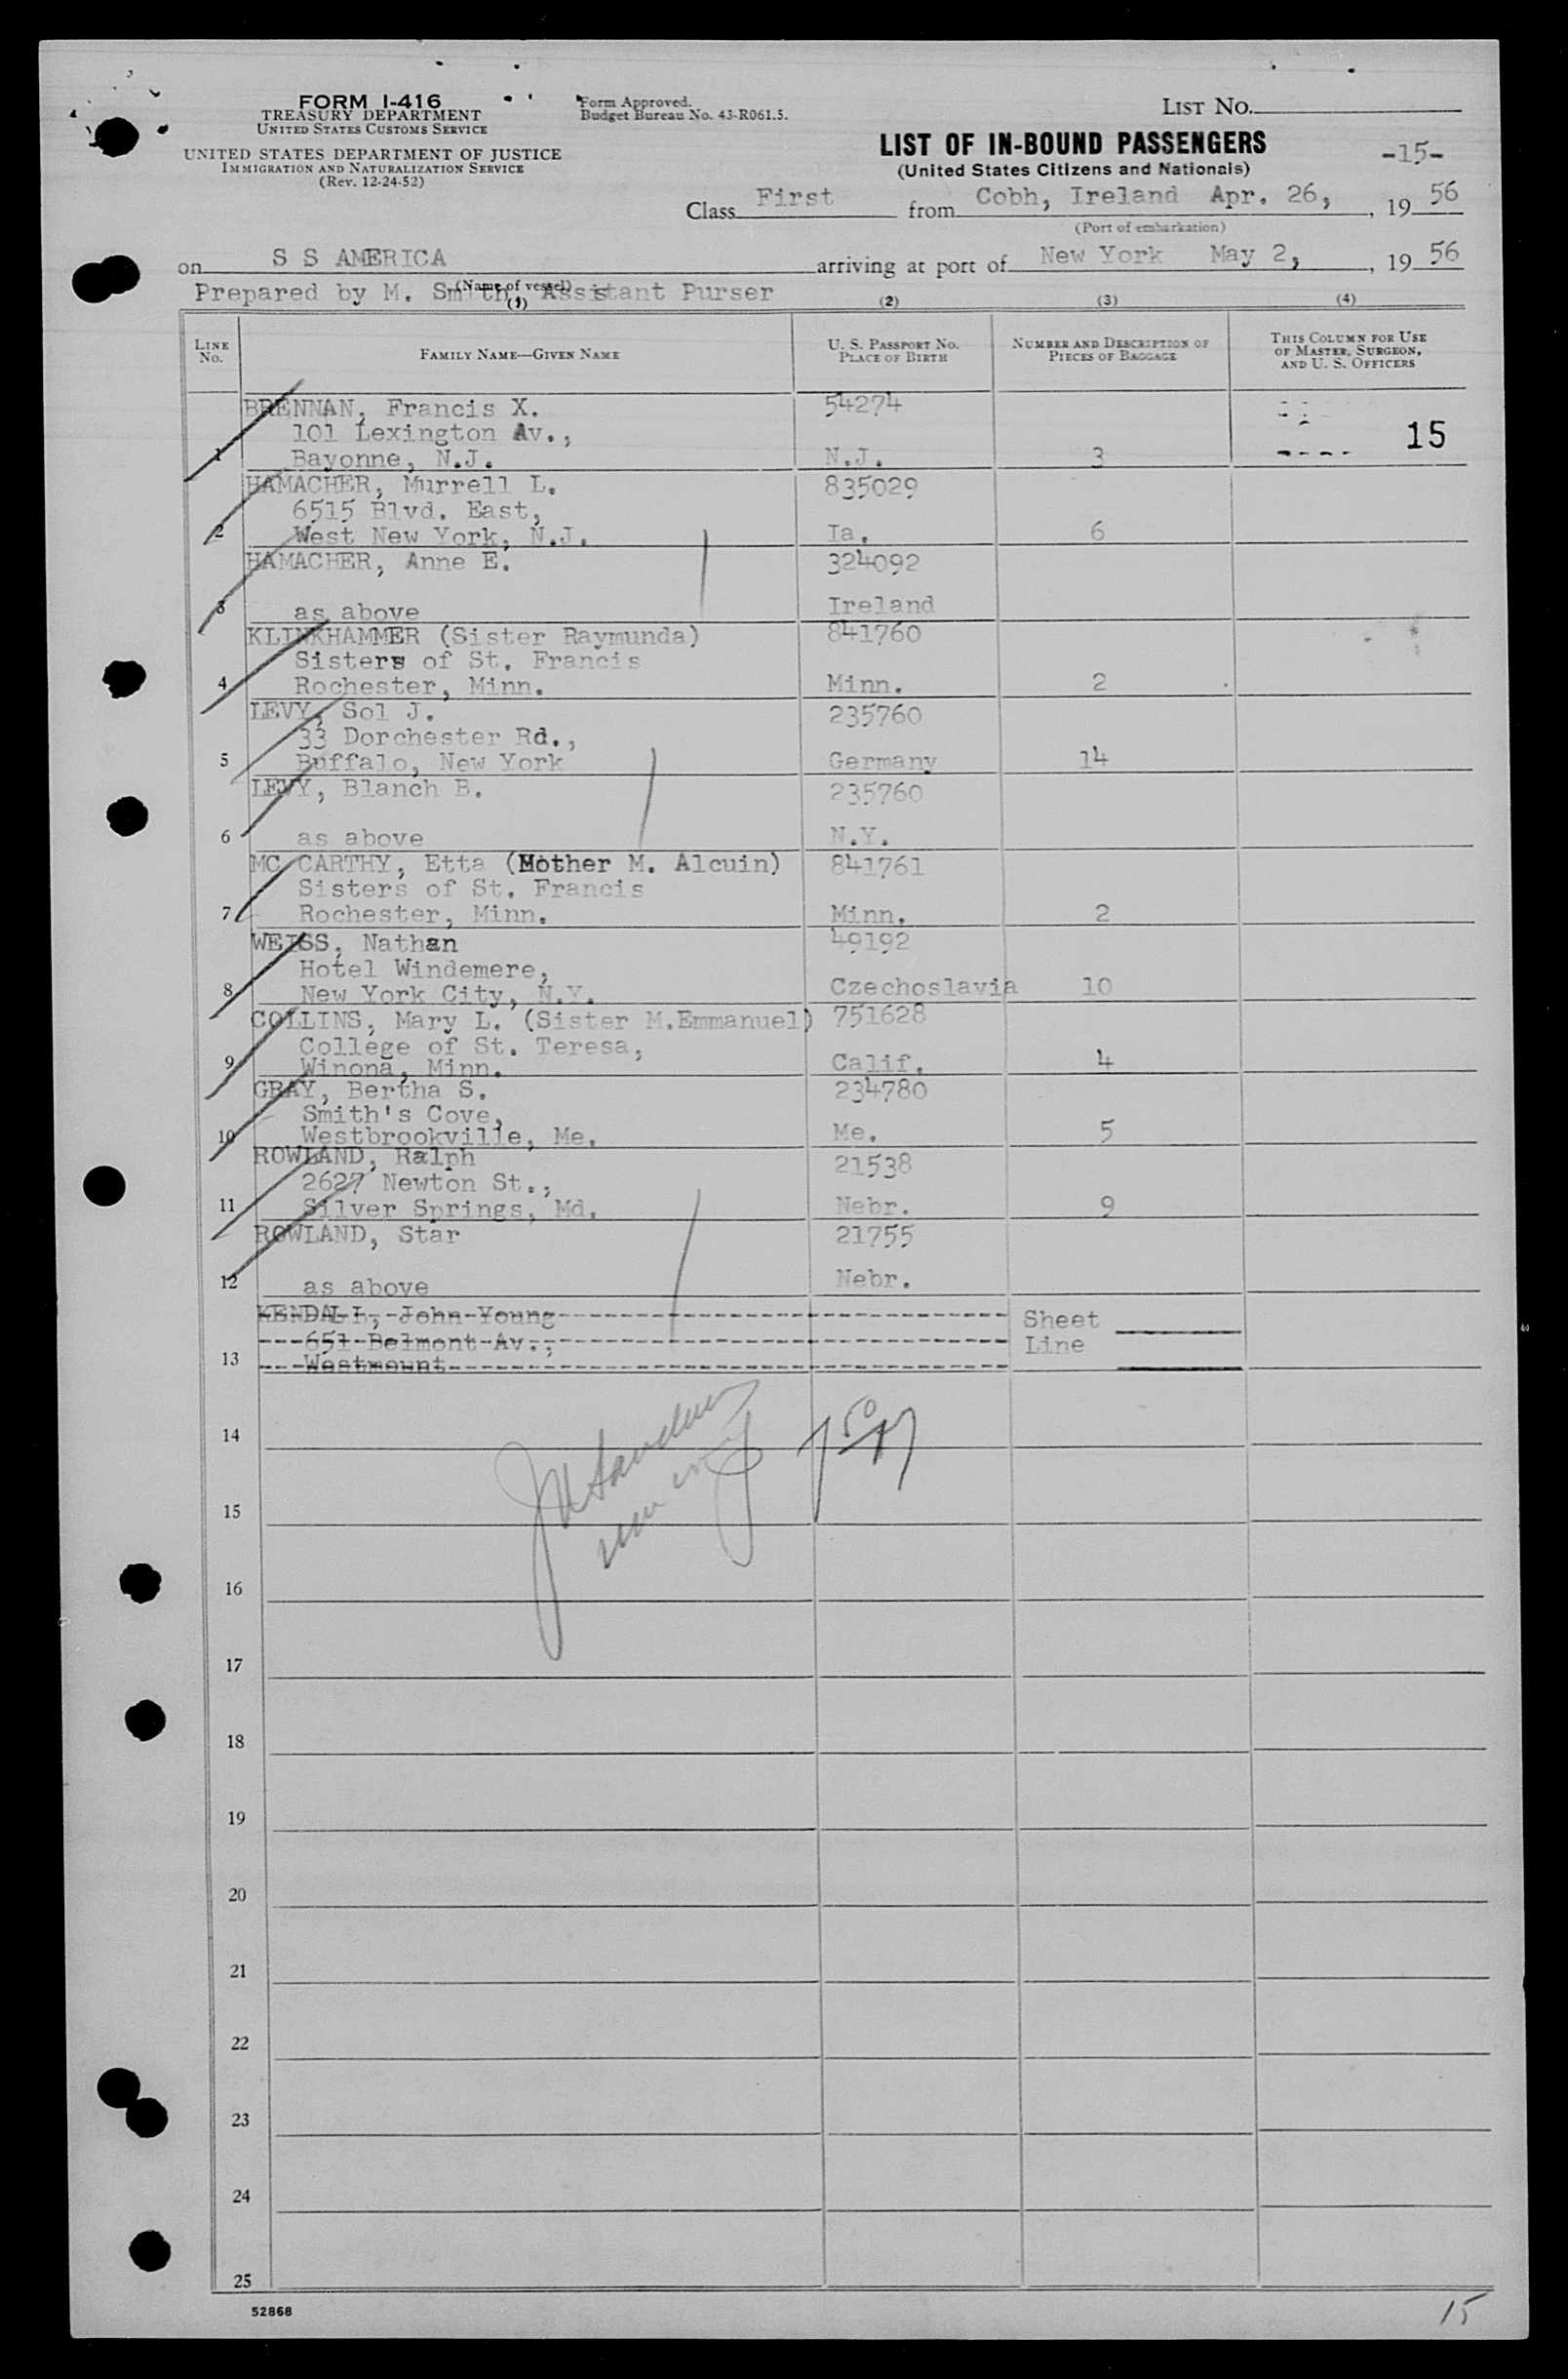 FORM I-416
TREASURY DEPARTMENT
UNITED STATES CUSTOMS SERVICE
UNITED STATES DEPARTMENT OF JUSTICE
IMMIGRATION AND NATURALIZATION SERVICE
(Rev. 12-24-52)
Form Approved.
Budget Bureau No. 43-R061.5.
LIST NO.
LIST OF IN-BOUND PASSENGERS
(United States Citizens and Nationals)
-15-
Class First from Cobh, Ireland Apr. 26, , 19 56
(Port of embarkation)
on S S AMERICA arriving at port of New York May 2, , 19 56
(Name of vessel)
Prepared by M. Smith, Assistant Purser
(1) (2) (3) (4)
LINE NO. FAMILY NAME—GIVEN NAME U. S. PASSPORT NO. PLACE OF BIRTH NUMBER AND DESCRIPTION OF PIECES OF BAGGAGE THIS COLUMN FOR USE OF MASTER, SURGEON, AND U. S. OFFICERS
BRENNAN, Francis X. 54274
101 Lexington Av., 15
1 Bayonne, N.J. N.J. 3
HAMACHER, Murrell L. 835029
6515 Blvd. East,
2 West New York, N.J. Ia. 6
HAMACHER, Anne E. 324092
3 as above Ireland
KLINKHAMMER (Sister Raymunda) 841760
Sisters of St. Francis
4 Rochester, Minn. Minn. 2
LEVY, Sol J. 235760
33 Dorchester Rd.,
5 Buffalo, New York Germany 14
LEVY, Blanch B. 235760
6 as above N.Y.
MC CARTHY, Etta (Mother M. Alcuin) 841761
Sisters of St. Francis
7 Rochester, Minn. Minn. 2
WEISS, Nathan 49192
Hotel Windemere,
8 New York City, N.Y. Czechoslavia 10
COLLINS, Mary L. (Sister M.Emmanuel) 751628
College of St. Teresa,
9 Winona, Minn. Calif. 4
GRAY, Bertha S. 234780
Smith's Cove,
10 Westbrookville, Me. Me. 5
ROWLAND, Ralph 21538
2627 Newton St.,
11 Silver Springs, Md. Nebr. 9
ROWLAND, Star 21755
12 as above Nebr.
KENDALL, John Young Sheet
651 Belmont Av., Line
13 Westmount
14
15
16
17
18
19
20
21
22
23
24
25
52868
15